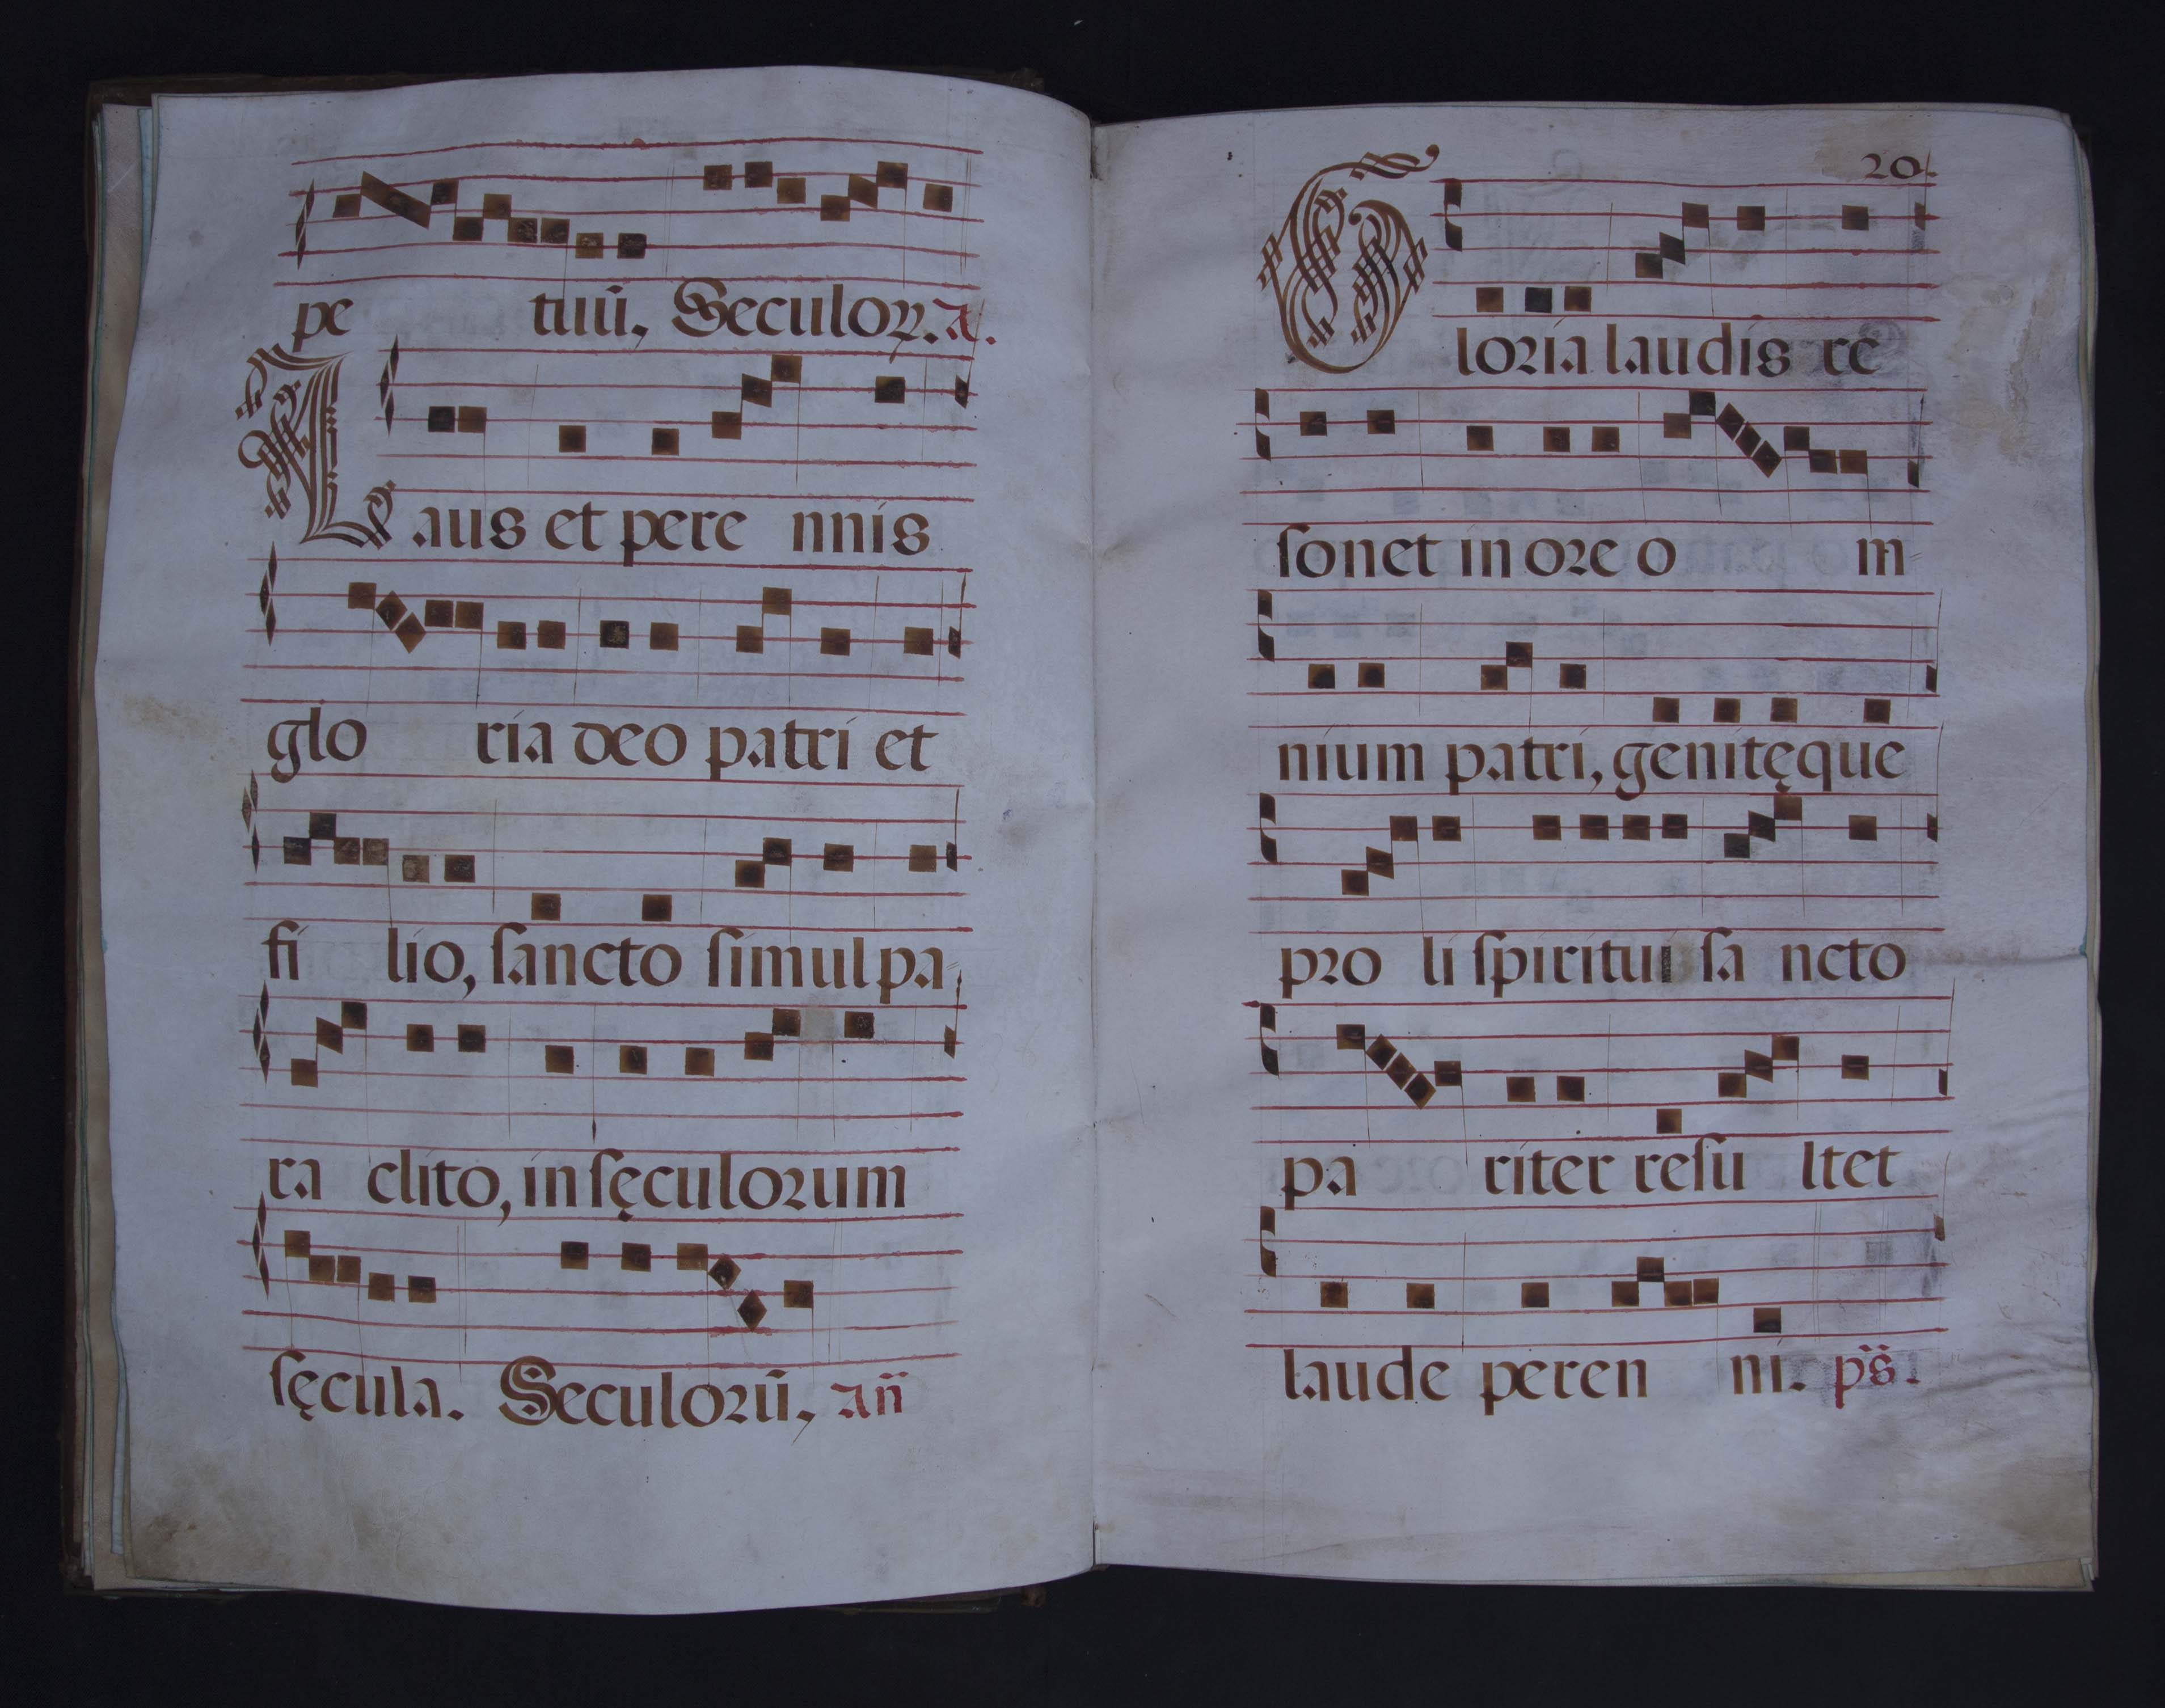 pe tuū, Seculoꝝ. A.
Laus et pere nnis
glo ria deo patri et
fi lio, ſancto ſimul pa-
ra clito, in ſęculorum
ſęcula. Seculorū, Añ
20.
Gloria laudis re
ſonet in ore o m-
nium patri, genitęque
pro li ſpiritui ſa ncto
pa riter reſu ltet
laude peren ni. ps̈.